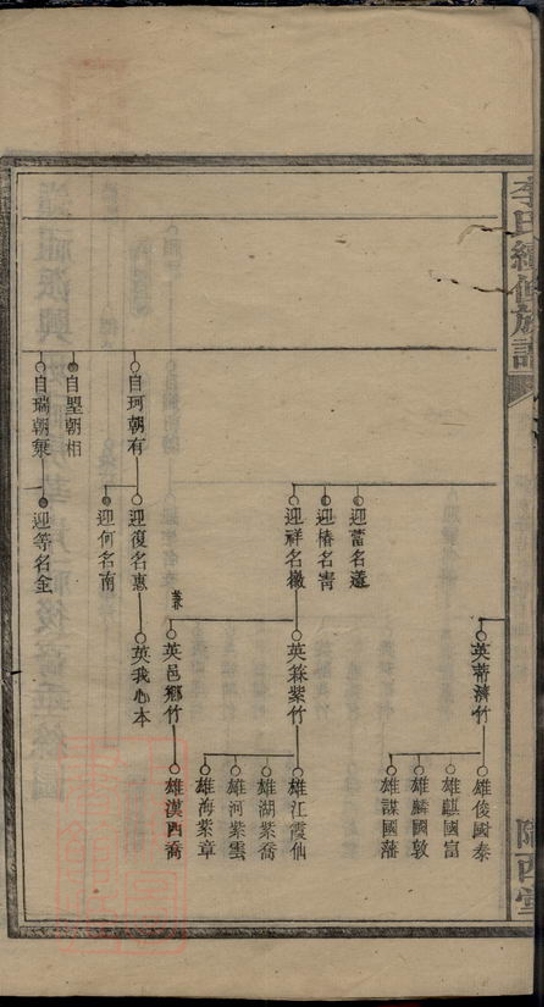 李氏續修族譜
隴西堂
英𦶜濟竹
雄俊國泰
雄麒國富
雄麟國敦
雄謀國藩
迎蕾名蓬
迎椿名壽
迎祥名徽
英𥳑紫竹
雄江霞仙
雄湖紫喬
雄河紫雲
雄海紫章
兼承
英邑鄉竹
雄漢西喬
自珂朝有
迎復名惠
英我心本
迎何名南
自聖朝相
自瑞朝棄
迎等名全